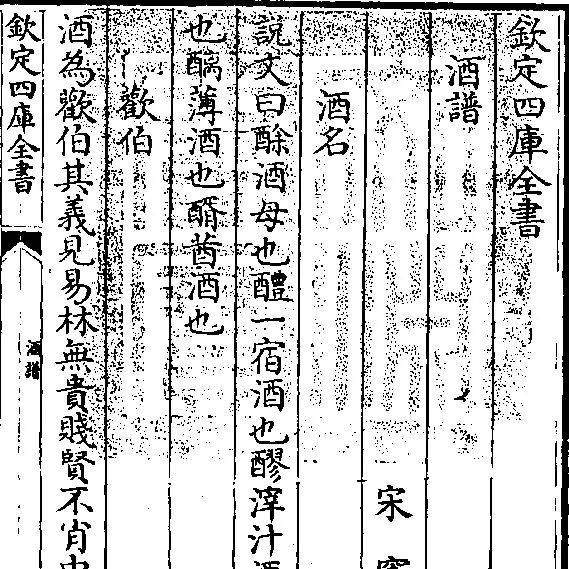 欽定四庫全書
酒譜
宋
酒名
說文曰酴酒母也醴一宿酒也醪滓汁酒
也醨薄酒也醑莤酒也
歡伯
酒為歡伯其義見易林無貴賤賢不肖
欽定四庫全書
酒譜